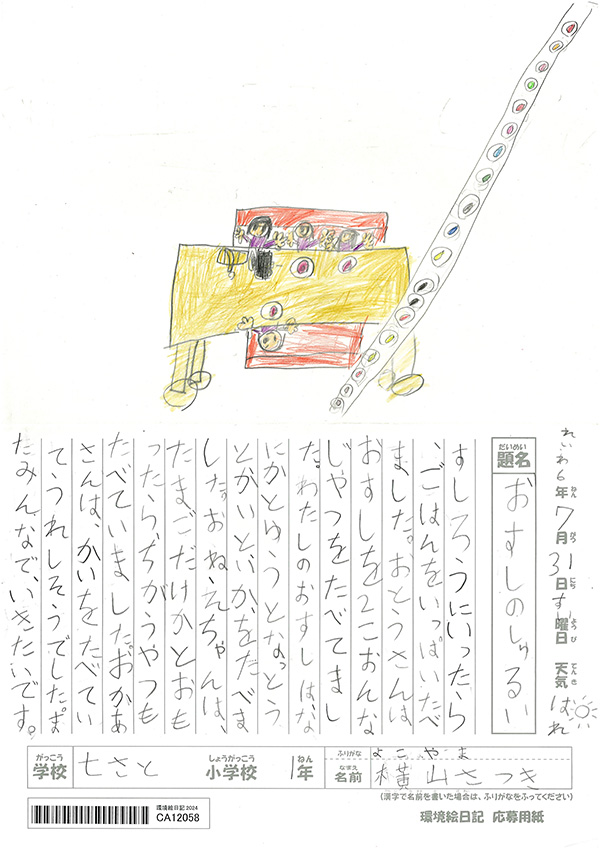 れいわ6年ねん7月がつ31日にちす曜日ようび 天気てんき はれ
題名だいめい おすしのしゅるい
すしろうにいったら
、ごはんをいっぱいたべ
ました。おとうさんは
おすしを2こおんな
じやつをたべてまし
た。わたしのおすしは、な
にかとゆうとなっとう
とかいといかをたべま
した。おねえちゃんは、
たまごだけかとおも
ったらちがうやつも
たべていました。おかあ
さんは、かいをたべてい
てうれしそうでした。ま
たみんなで、いきたいです。
学校がっこう 七さと 小学校しょうがっこう 1年ねん
ふりがな よこやま
名前なまえ 横山さつき
(漢字で名前を書いた場合は、ふりがなをふってください)
環境絵日記2024
CA12058
環境絵日記 応募用紙